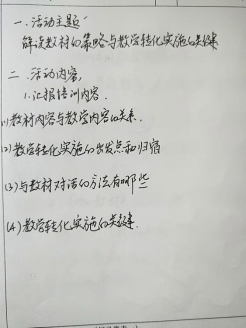 一.活动主题:
解读教材的策略与教学转化实施的关键
二.活动内容,
1.汇报培训内容.
(1)教材内容与教学内容的关系.
(2)教学转化实施的出发点和归宿
(3)与教材对话的方法有哪些
(4)教学转化实施的关键.